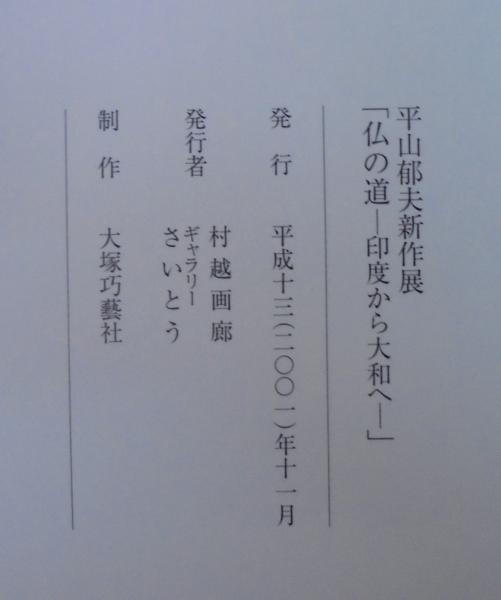 平山郁夫新作展
「仏の道―印度から大和へ―」
発行　平成十三(二〇〇一)年十一月
発行者　村越画廊
ギャラリー
さいとう
制作　大塚巧藝社